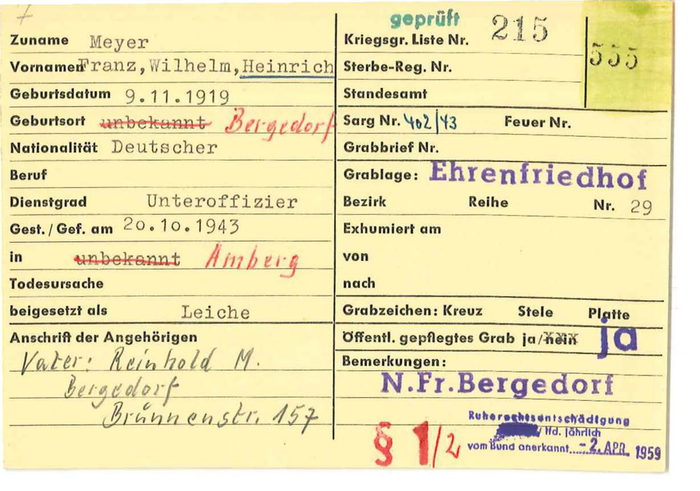 geprüft
Zuname Meyer
Vornamen Franz, Wilhelm, Heinrich
Geburtsdatum 9.11.1919
Geburtsort unbekannt Bergedorf
Nationalität Deutscher
Beruf
Dienstgrad Unteroffizier
Gest./Gef. am 20.10.1943
in unbekannt Amberg
Todesursache
beigesetzt als Leiche
Anschrift der Angehörigen
Vater: Reinhold M.
Bergedorf
Brunnenstr. 157
Kriegsgr. Liste Nr. 215
555
Sterbe-Reg. Nr.
Standesamt
Sarg Nr. 402/43 Feuer Nr.
Grabbrief Nr.
Grablage: Ehrenfriedhof
Bezirk Reihe Nr. 29
Exhumiert am
von
nach
Grabzeichen: Kreuz Stele Platte
Öffentl. gepflegtes Grab ja/nein ja
Bemerkungen:
N.Fr.Bergedorf
§ 1/2
Ruherechtsentschädigung
/Hd. jährlich
vom Bund anerkannt -2. APR. 1959